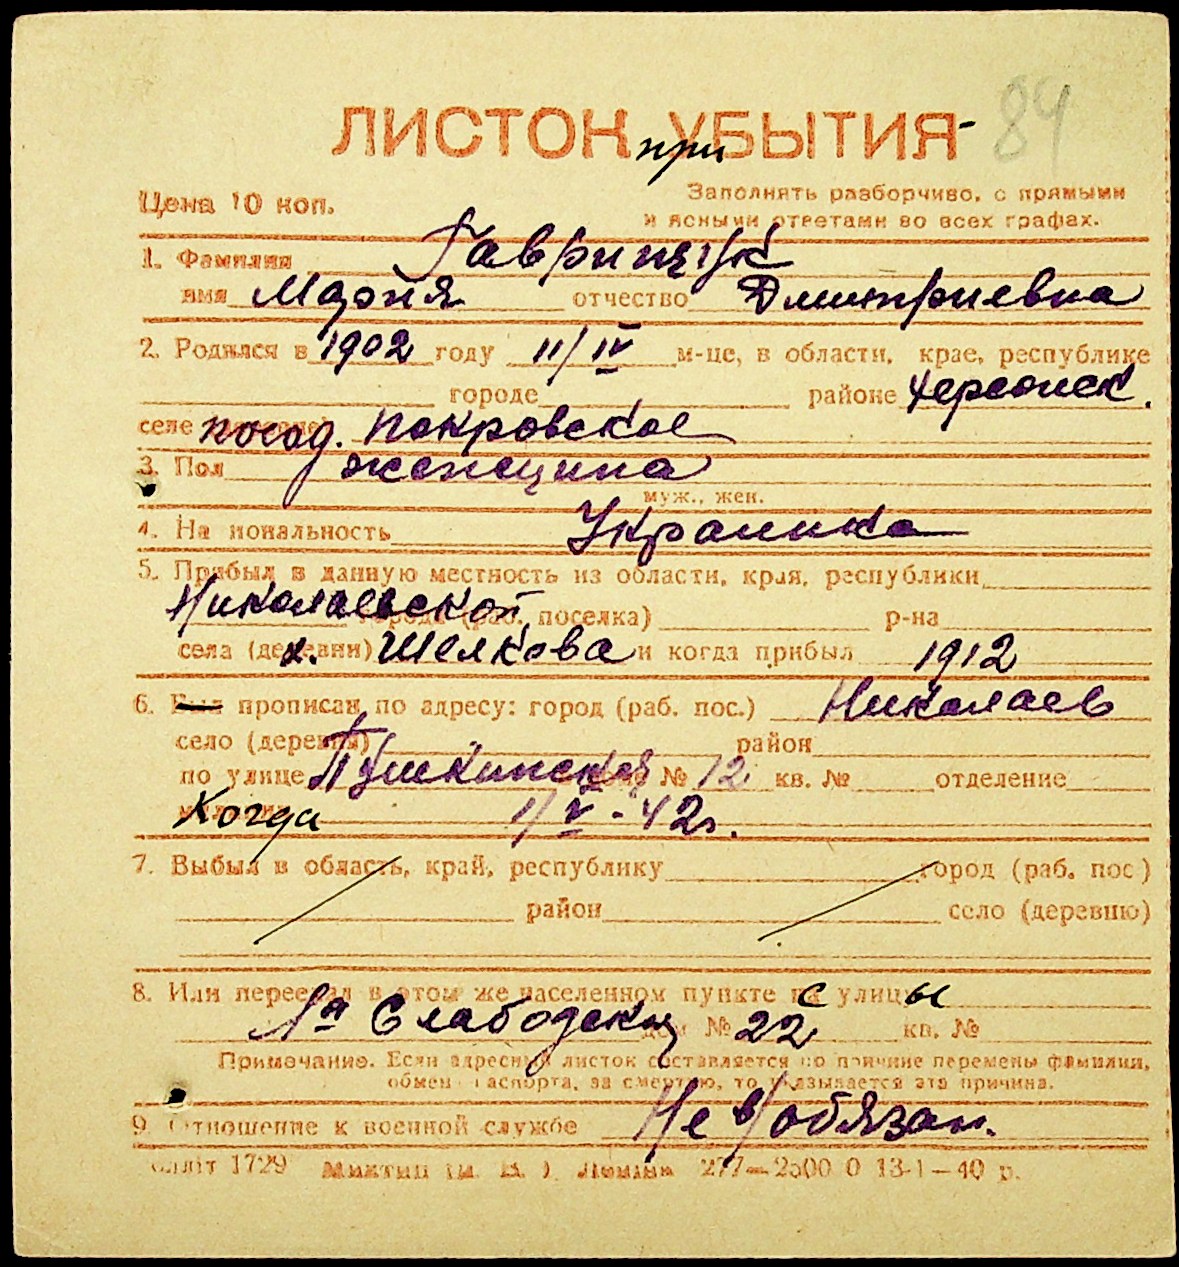 ЛИСТОК при УБЫТИЯ 84
Цена 10 коп.
Заполнять разборчиво, с прямыми
и ясными ответами во всех графах.
1. Фамилия
имя Мария отчество Дмитриевна
2. Родился в 1902 году 11/IV м-це, в области, крае, республике
городе районе Херсонск.
селе посад. Покровское
3. Пол женщина
муж., жен.
4. Национальность Украинка
5. Прибыл в данную местность из области, края, республики
Николаевской города (раб. поселка) р-на
села (деревни) х. Шелкова и когда прибыл 1912
6. Был прописан по адресу: город (раб. пос.) Николаев
село (деревня) район
по улице Пушкинская № 12 кв. № отделение
Когда 1/V-42г.
7. Выбыл в область, край, республику город (раб. пос)
район село (деревню)
8. Или переехал в этом же населенном пункте с улицы
1я Слободская дом № 22 кв. №
Примечание. Если адресный листок составляется по причине перемены фамилии,
обмен паспорта, за смертью, то указывается эта причина.
9. Отношение к военной службе Не в/обязан.
1729 277—2500 0 13-1—40 р.